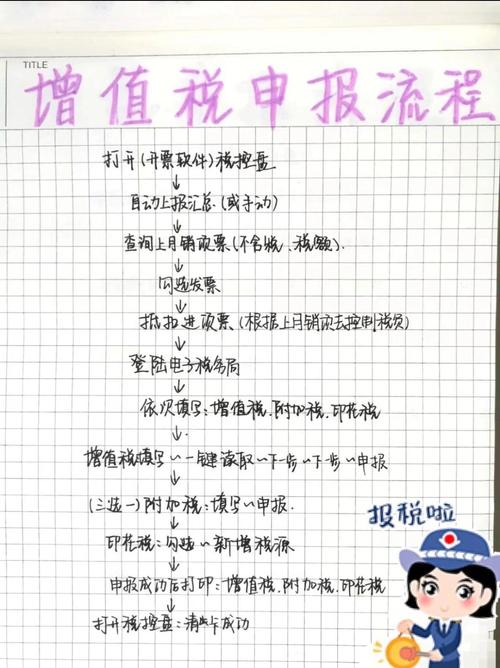 TITLE
增值税申报流程
打开(开票软件)税控盘
自动上报汇总(或手动)
查询上月销项票(不含税、税额).
勾选发票
抵扣进项票(根据上月销项去控制税负)
登陆电子税务局
依次填写:增值税.附加税.印花税
增值税填写~一键读取~下一步~下一步~申报
(三选一)附加税:填写~申报.
报税啦
印花税:勾选~新增税源
申报成功后打印:增值税.附加税.印花税
打开税控盘:清卡成功